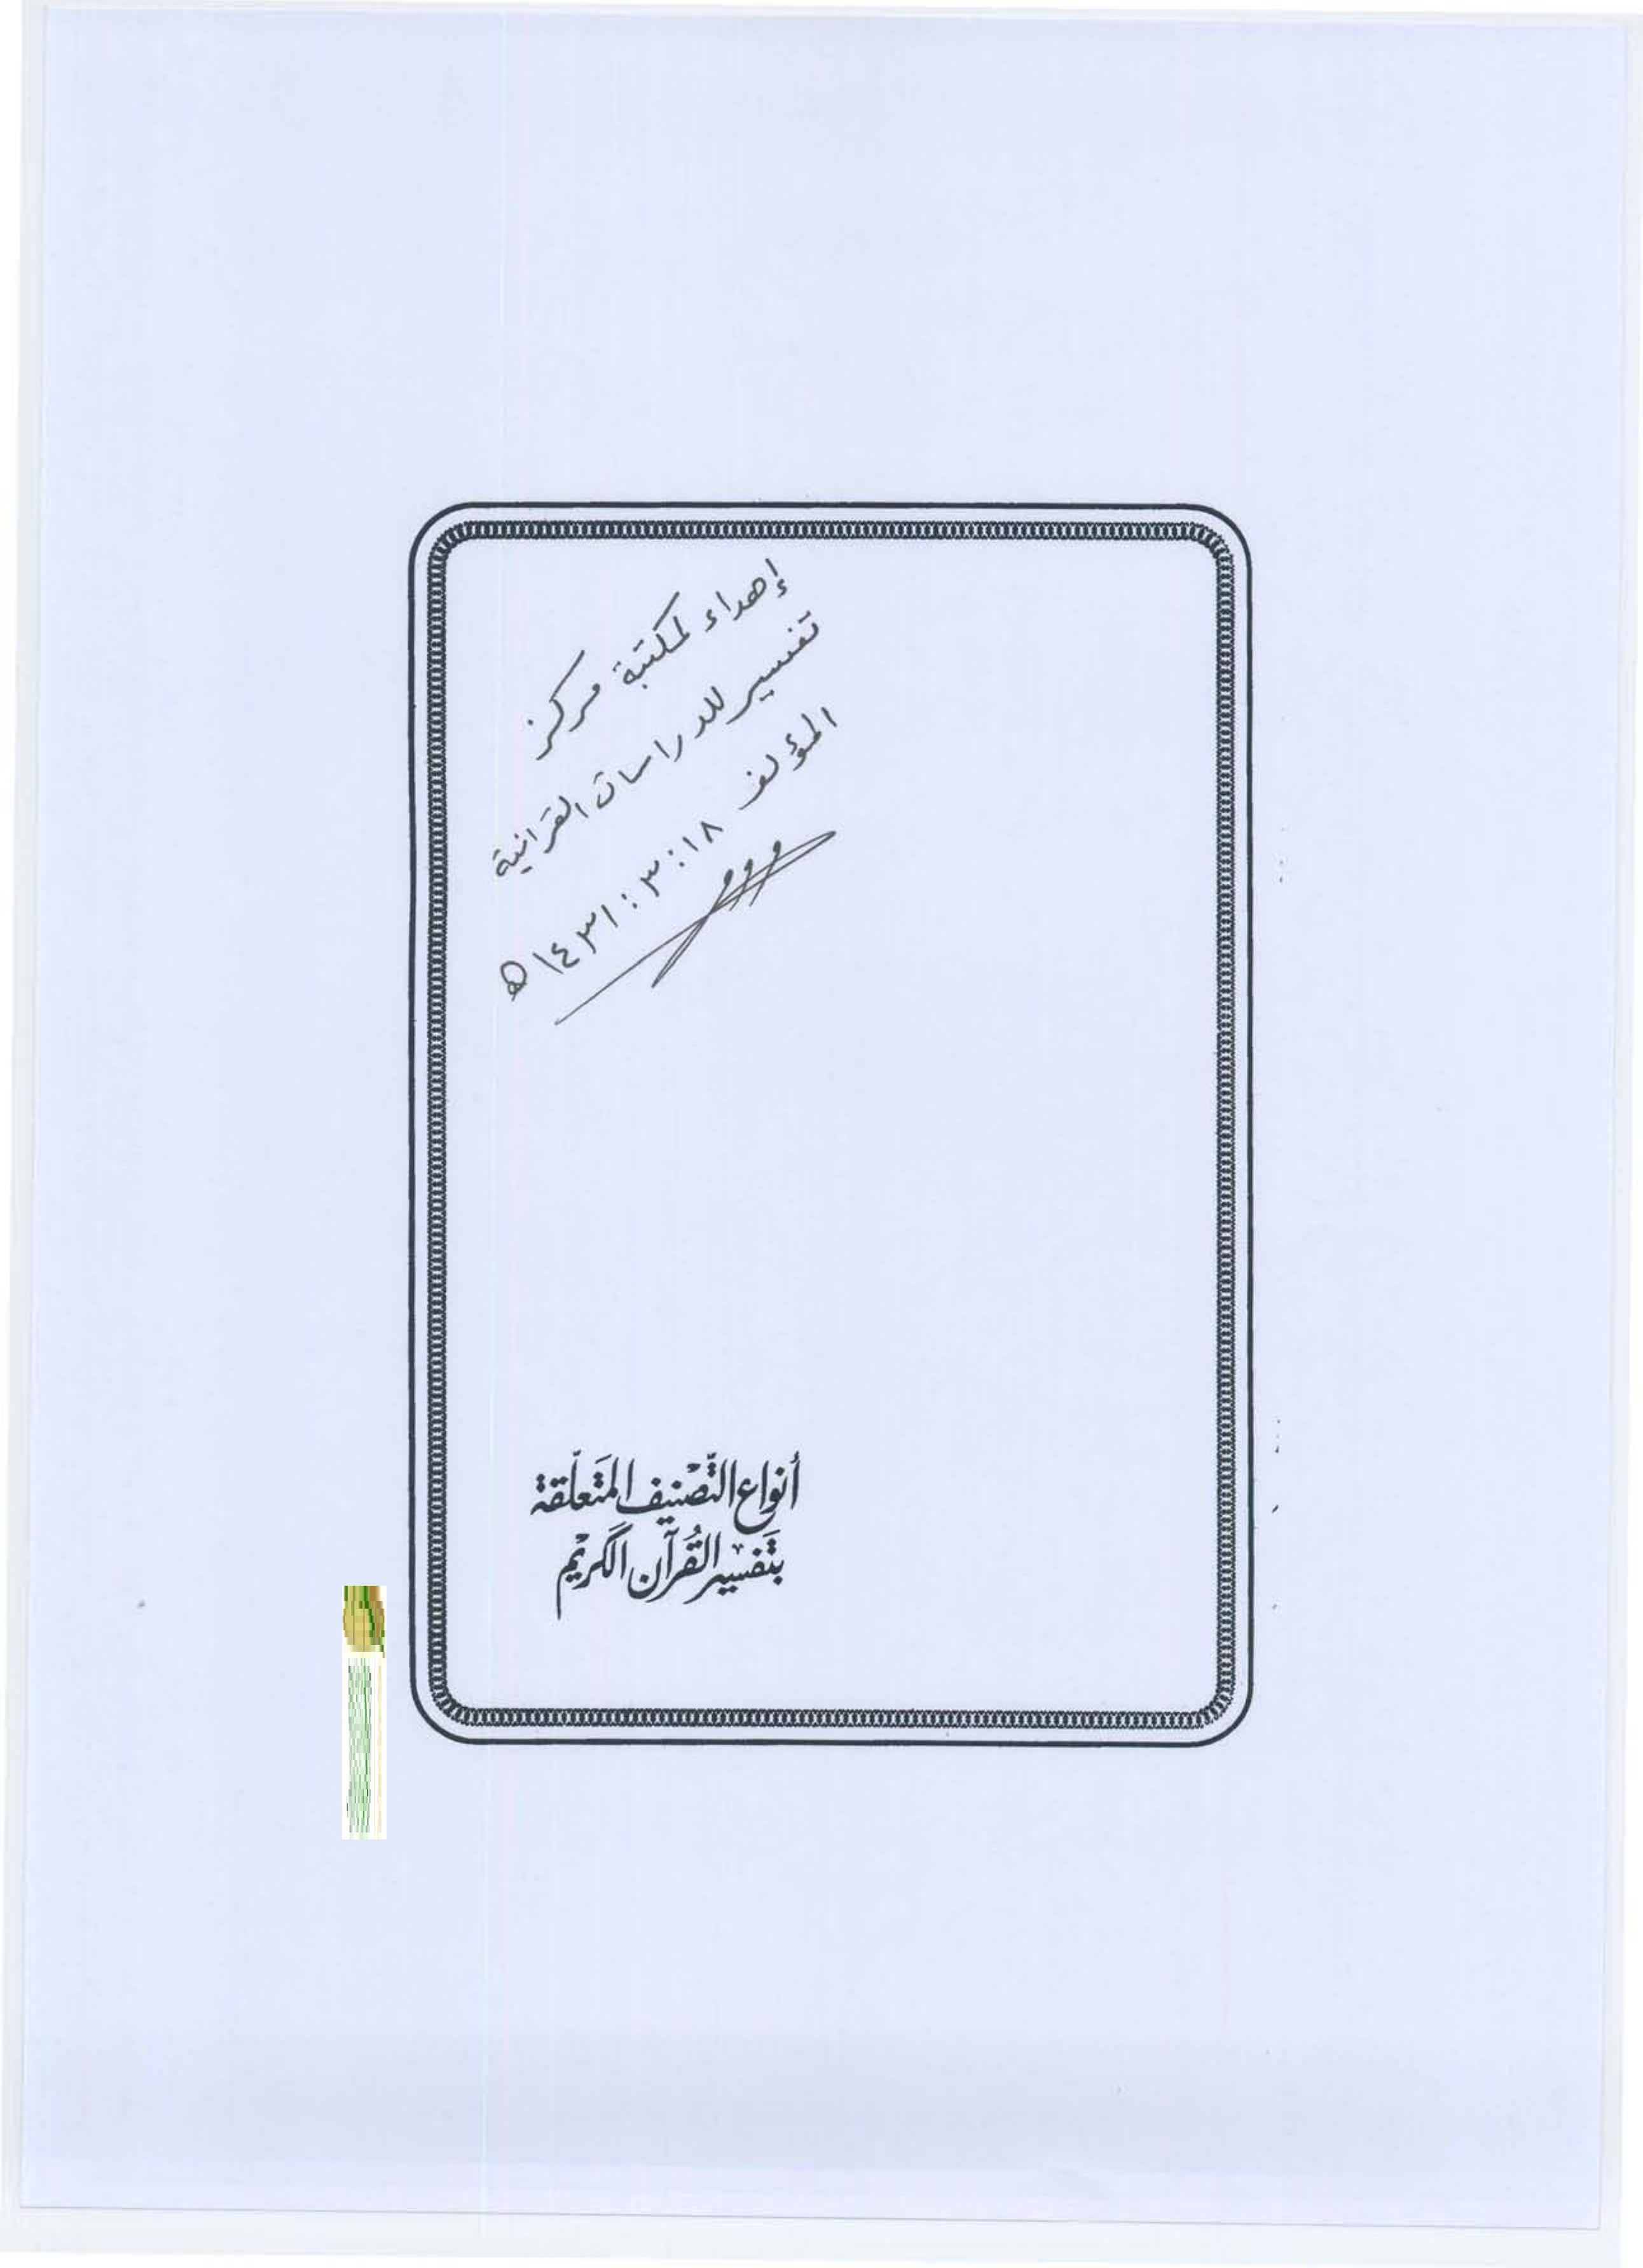 إهداء لمكتبة مركز
تفسير للدراسات القرآنية
المؤلف ١٨:٣:١٤٣١ه
أنواع التَّصْنيف المتَعلّقة
بتَفسيْر القُرآن الكَريْم